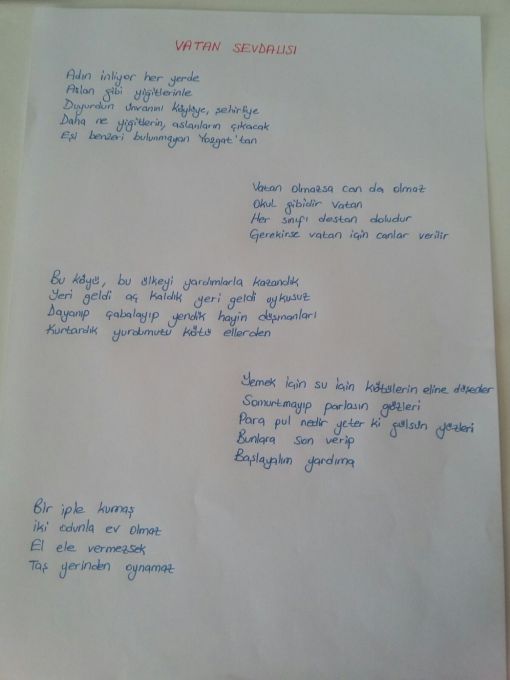 VATAN SEVDALISI
Adın inliyor her yerde
Aslan gibi yiğitlerinle
Duyurdun ünvanını köylüye, şehirliye
Daha ne yiğitlerin, aslanların çıkacak
Eşi benzeri bulunmayan Yozgat'tan
Vatan olmazsa can da olmaz
Okul gibidir vatan
Her sınıfı destan doludur
Gerekirse vatan için canlar verilir
Bu köyü, bu ülkeyi yardımlarla kazandık
Yeri geldi aç kaldık yeri geldi uykusuz
Dayanıp çabalayıp yendik hayin düşmanları
Kurtardık yurdumuzu kötü ellerden
Yemek için su için kötülerin eline düşenler
Somurtmayıp parlasın gözleri
Para pul nedir yeter ki gülsün yüzleri
Bunlara son verip
Başlayalım yardıma
Bir iple kumaş
iki odunla ev olmaz
El ele vermezsek
Taş yerinden oynamaz